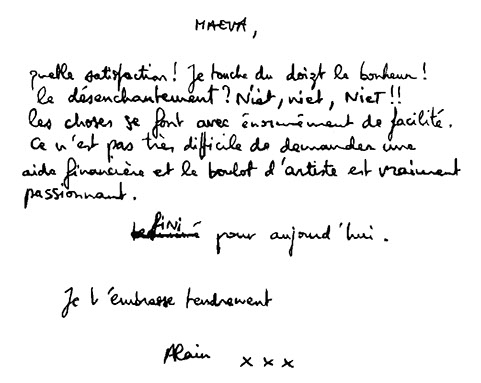 MAEVA,
quelle satisfaction! Je touche du doigt le bonheur!
le désenchantement? Niet, niet, NIET!!
les choses se font avec énormément de facilité.
Ce n'est pas très difficile de demander une
aide financière et le boulot d'artiste est vraiment
passionnant.
FiNi pour aujourd'hui.
Je t'embrasse tendrement
Alain x x x